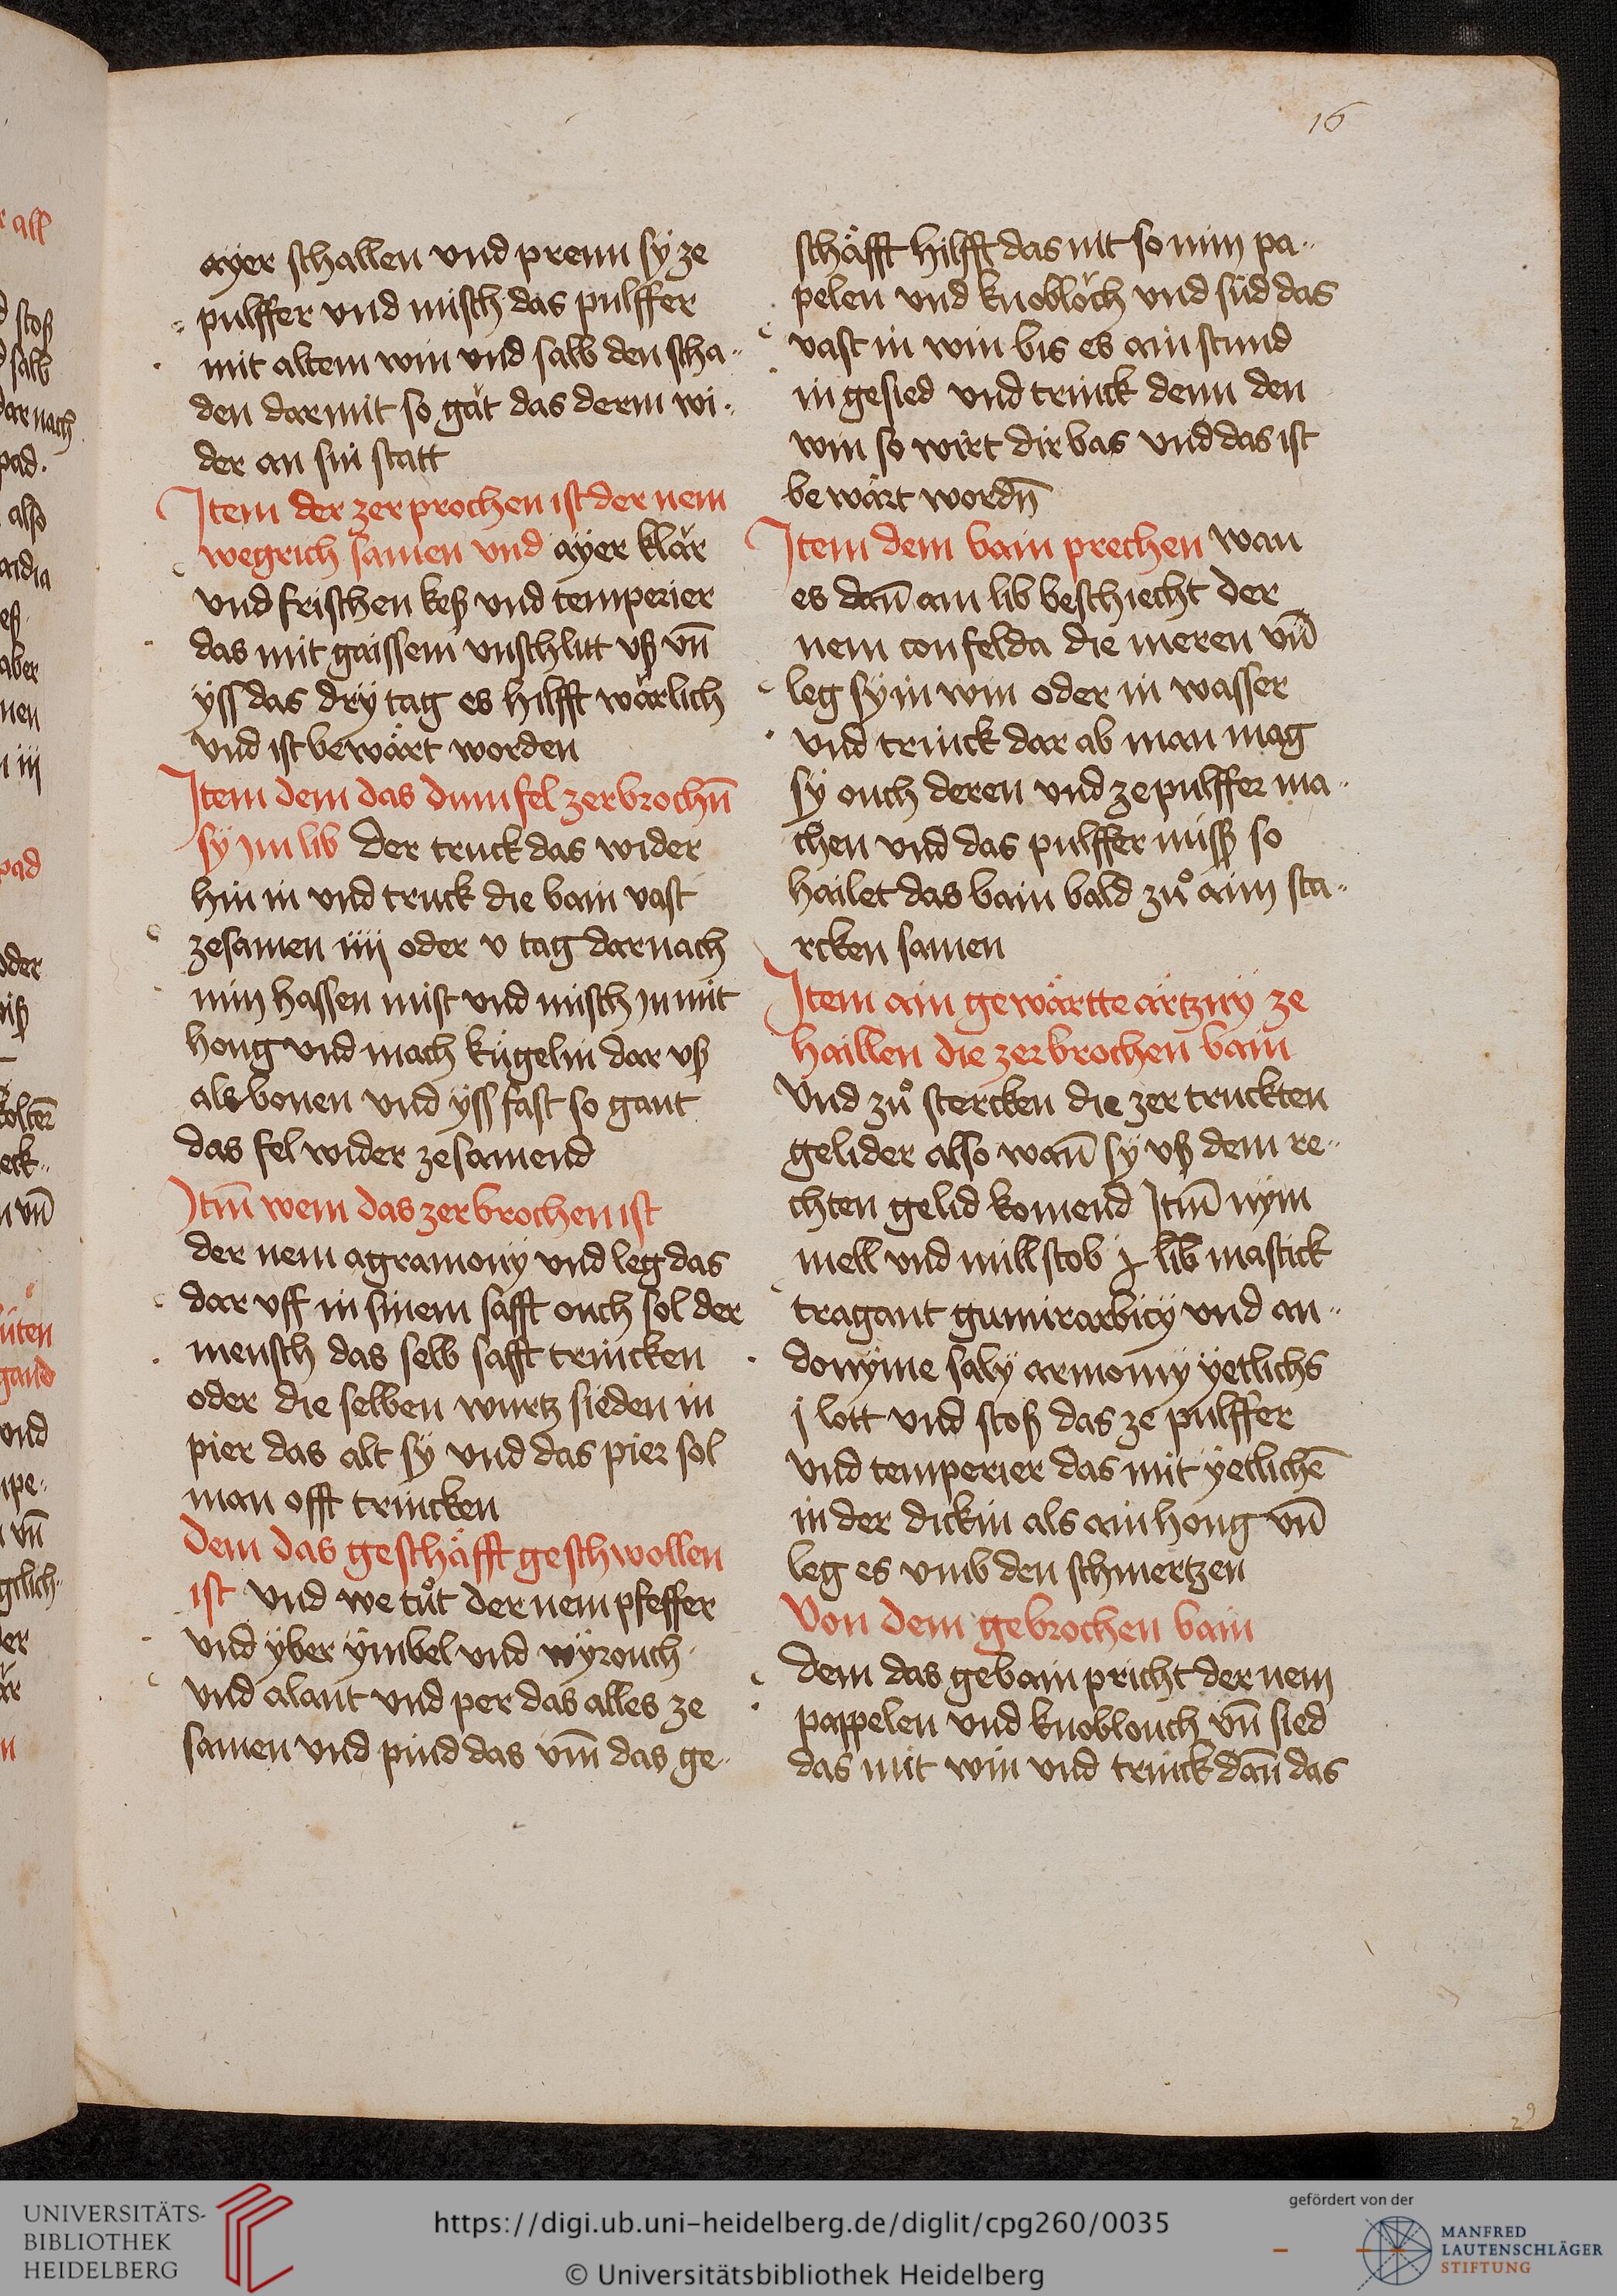 16
ayer schallen vnd prenn sÿ ze
pulffer vnd misch das pulffer
mit altem win vnd salb den scha-
den darmit so gät das derm wi-
der an sin statt
Item der zerprochen ist der nem
wegrich samen vnd ayer klär
vnd frischen keß vnd temperier
das mit gaissem vnschlitt vß vn̄
ÿss das drÿ tag es hilfft wärlich
vnd ist bewärt worden
Item dem das dum fel zerbrochn̄
sÿ jm lib der truck das wider
hin in vnd truck die bain vast
zesamen iiij oder v tag darnach
nim hassen mist vnd misch jn mit
hong vnd mach kügelin dar vß
als bonen vnd ÿss fast so gant
das fel wider zesamend
Itm̄ wem das zerbrochen ist
der nem agramonÿ vnd leg das
dar vff in sinem safft ouch sol der
mensch das selb safft trincken
oder die selben wurtz sieden in
pier das alt sÿ vnd das pier sol
man offt trincken
Dem das geschäfft geschwollen
ist vnd we tuͦt der nem pfeffer
vnd ÿber ÿmbel vnd wÿrouch
vnd alant vnd per das alles ze
samen vnd pind das vm̄ das ge-
schäfft hilfft das nit so nim pa-
pelen vnd knobloͮch vnd süd das
vast in win bis es ain stund
in gesied vnd trinck denn den
win so wirt dir bas vnd das ist
bewärt wordn̄
Item dem bain prechen wan
es dan̄ am lib beschiecht der
nem confelda die meren vn̄
leg sÿ in win oder in wasser
vnd trinck dar ab man mag
sÿ ouch deren vnd ze pulffer ma-
chen vnd das pulffer niss so
hailet das bain bald zuͦ aim sta-
rcken samen
Item ain gewärtte ärtznÿ ze
haillen die zerbrochen bain
Vnd zuͦ stercken die zertruckten
gelider also wan̄ sÿ vß dem re-
chten gelid komend Itm̄ nÿm
mell vnd mill stob j lib mastick
tragant gumirarbicÿ vnd an-
donÿme salÿ armonÿ ÿetlichs
j lott vnd stoß das ze pulffer
vnd temperier das mit ÿetlichē
in der dickin als ain hong vn̄
leg es vmb den schmertzen
Von dem gebrochen bain
Dem das gebain pricht der nem
pappelen vnd knoblouch vn̄ sied
das mit win vnd trinck dan̄ das
29
UNIVERSITÄTS-
BIBLIOTHEK
HEIDELBERG
https://digi.ub.uni-heidelberg.de/diglit/cpg260/0035
© Universitätsbibliothek Heidelberg
gefördert von der
MANFRED
LAUTENSCHLÄGER
STIFTUNG